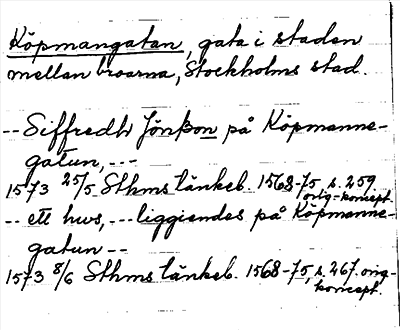 Köpmangatan, gata i staden
mellan broarna, Stockholms stad.
-- Siffredh Jönßon på Köpmanne-
gatun, ---
1573 25/5 Sthms tänkeb. 1568-75, s. 259.
orig-koncept.
-- ett hws, --- liggiendes på Köpmanne-
gatun --
1573 8/6 Sthms tänkeb. 1568-75, s. 267. orig-
koncept.